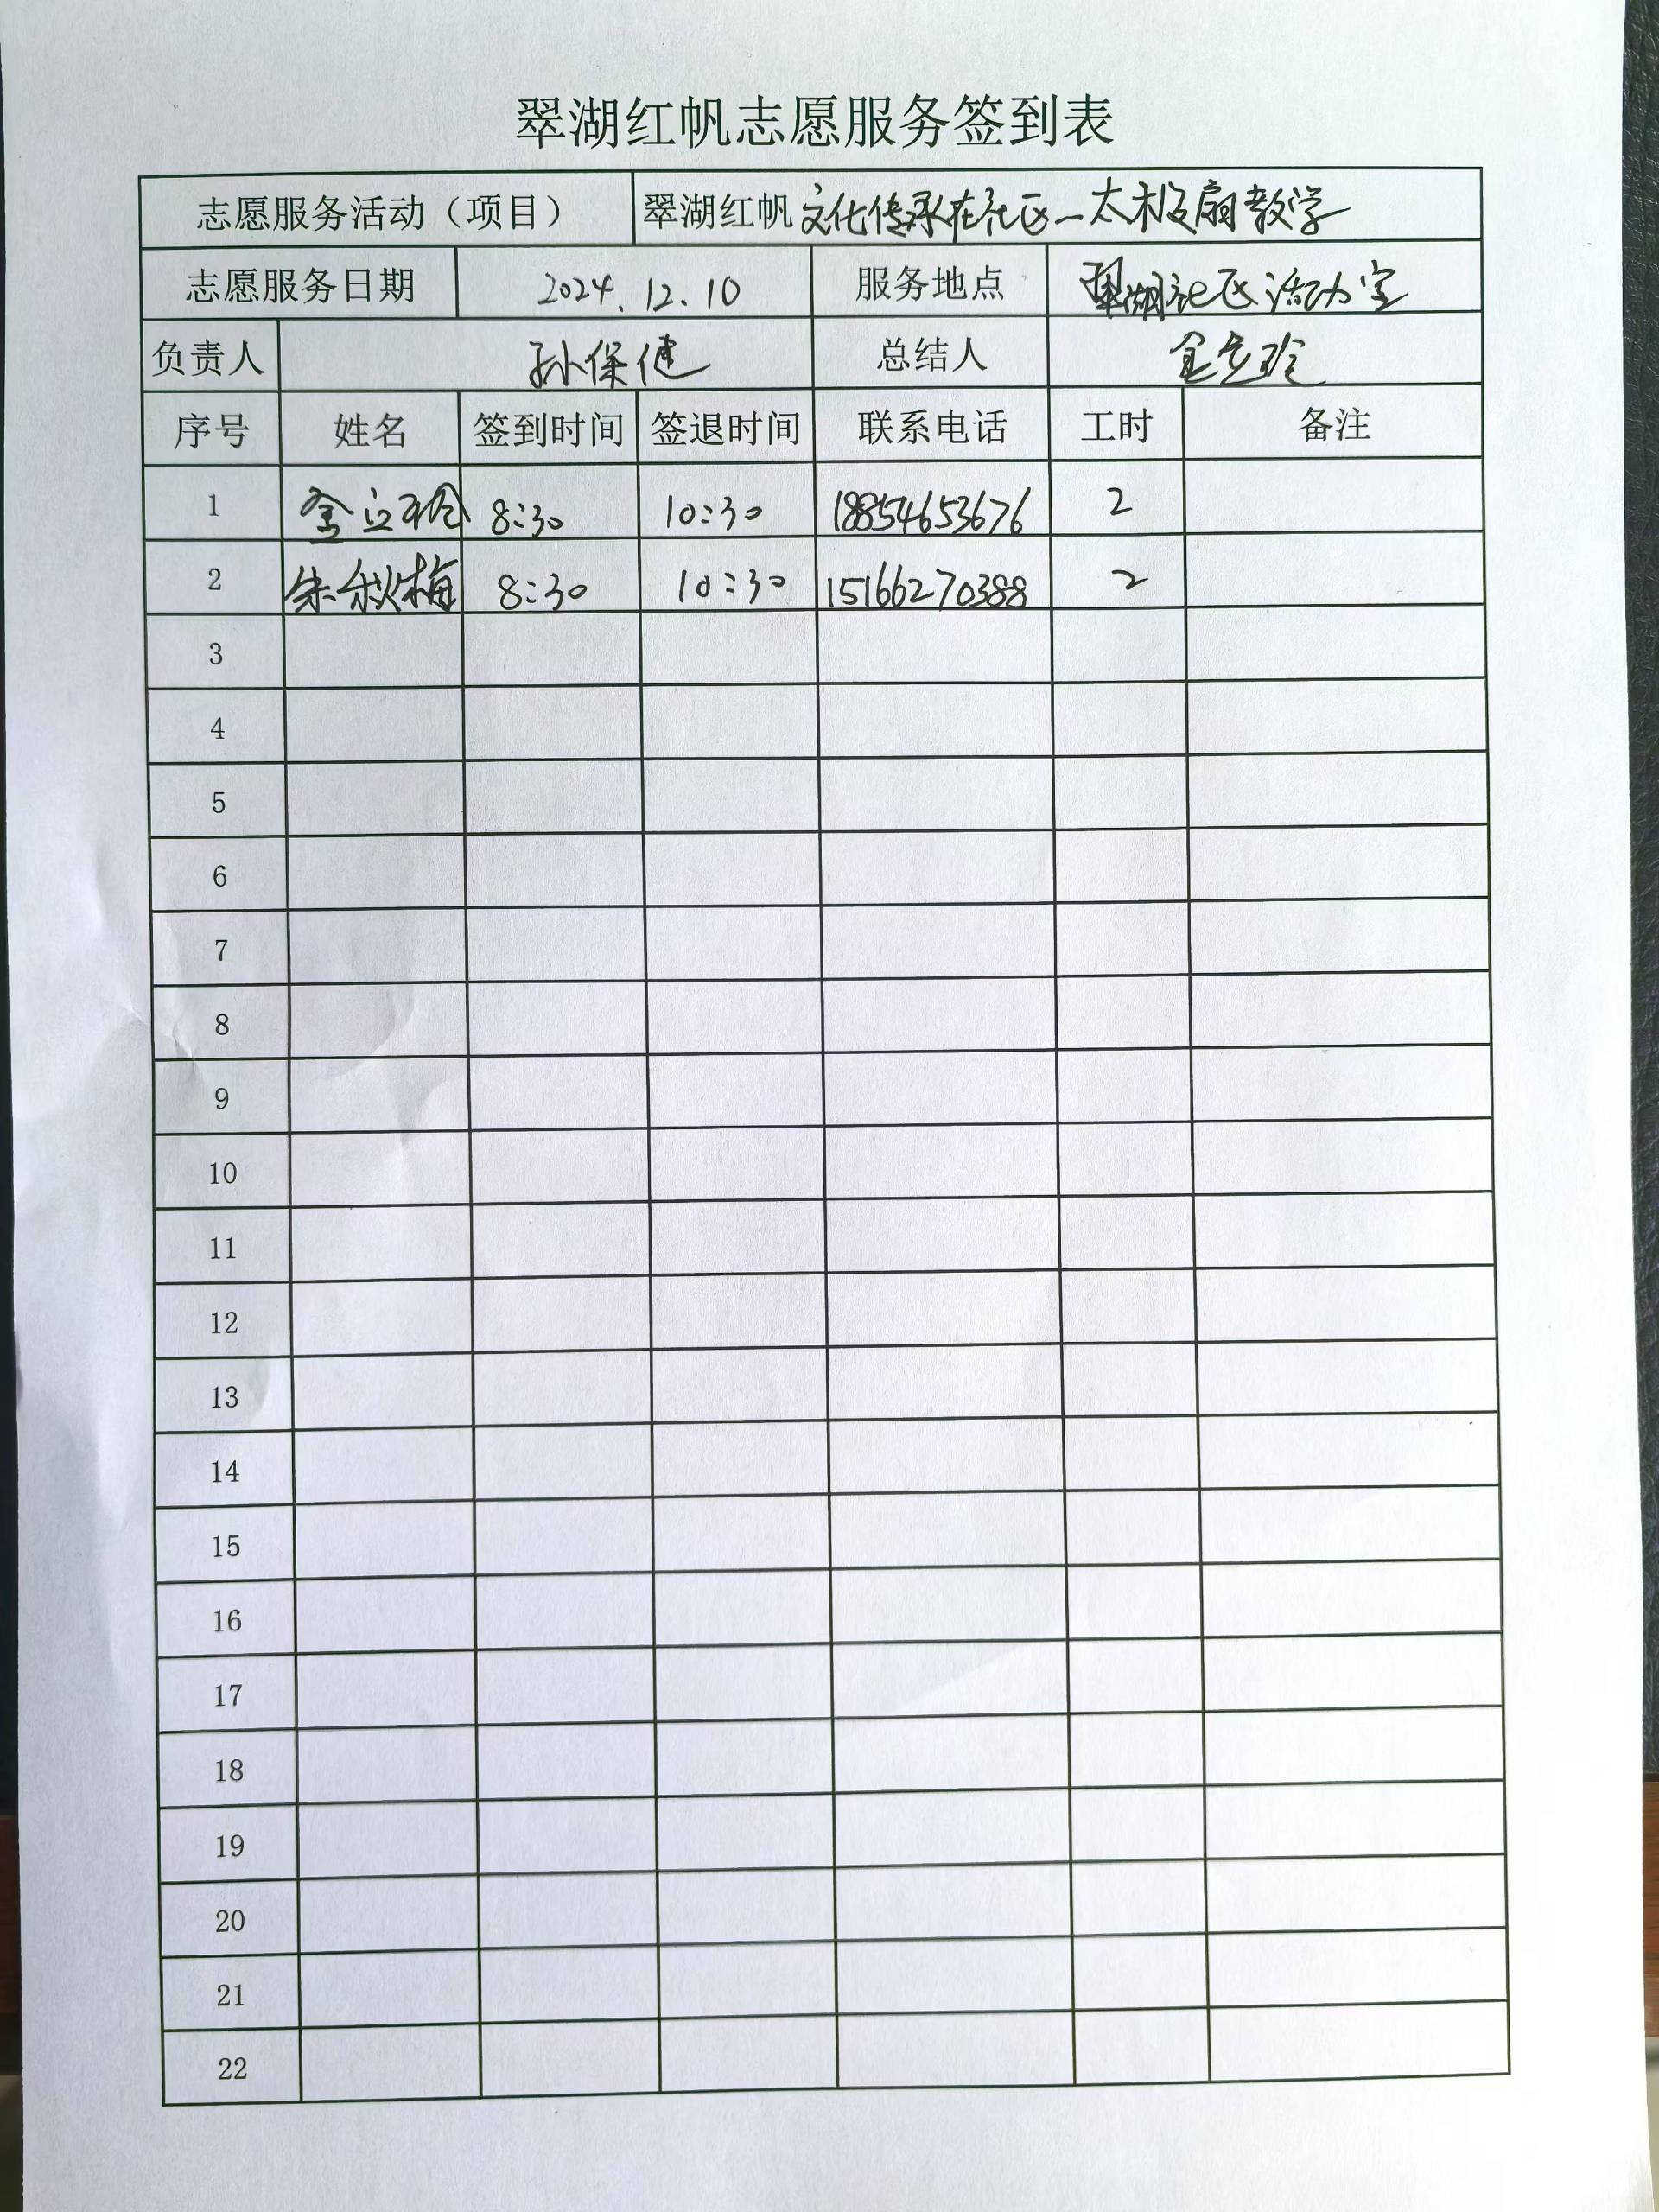 翠湖红帆志愿服务签到表
志愿服务活动（项目） 翠湖红帆文化传承在社区—太极扇教学
志愿服务日期 2024.12.10 服务地点 翠湖社区活动室
负责人 孙保健 总结人 金立玲
序号 姓名 签到时间 签退时间 联系电话 工时 备注
1 金立玲 8:30 10:30 18854653676 2
2 朱秋梅 8:30 10:30 15166270388 2
3
4
5
6
7
8
9
10
11
12
13
14
15
16
17
18
19
20
21
22